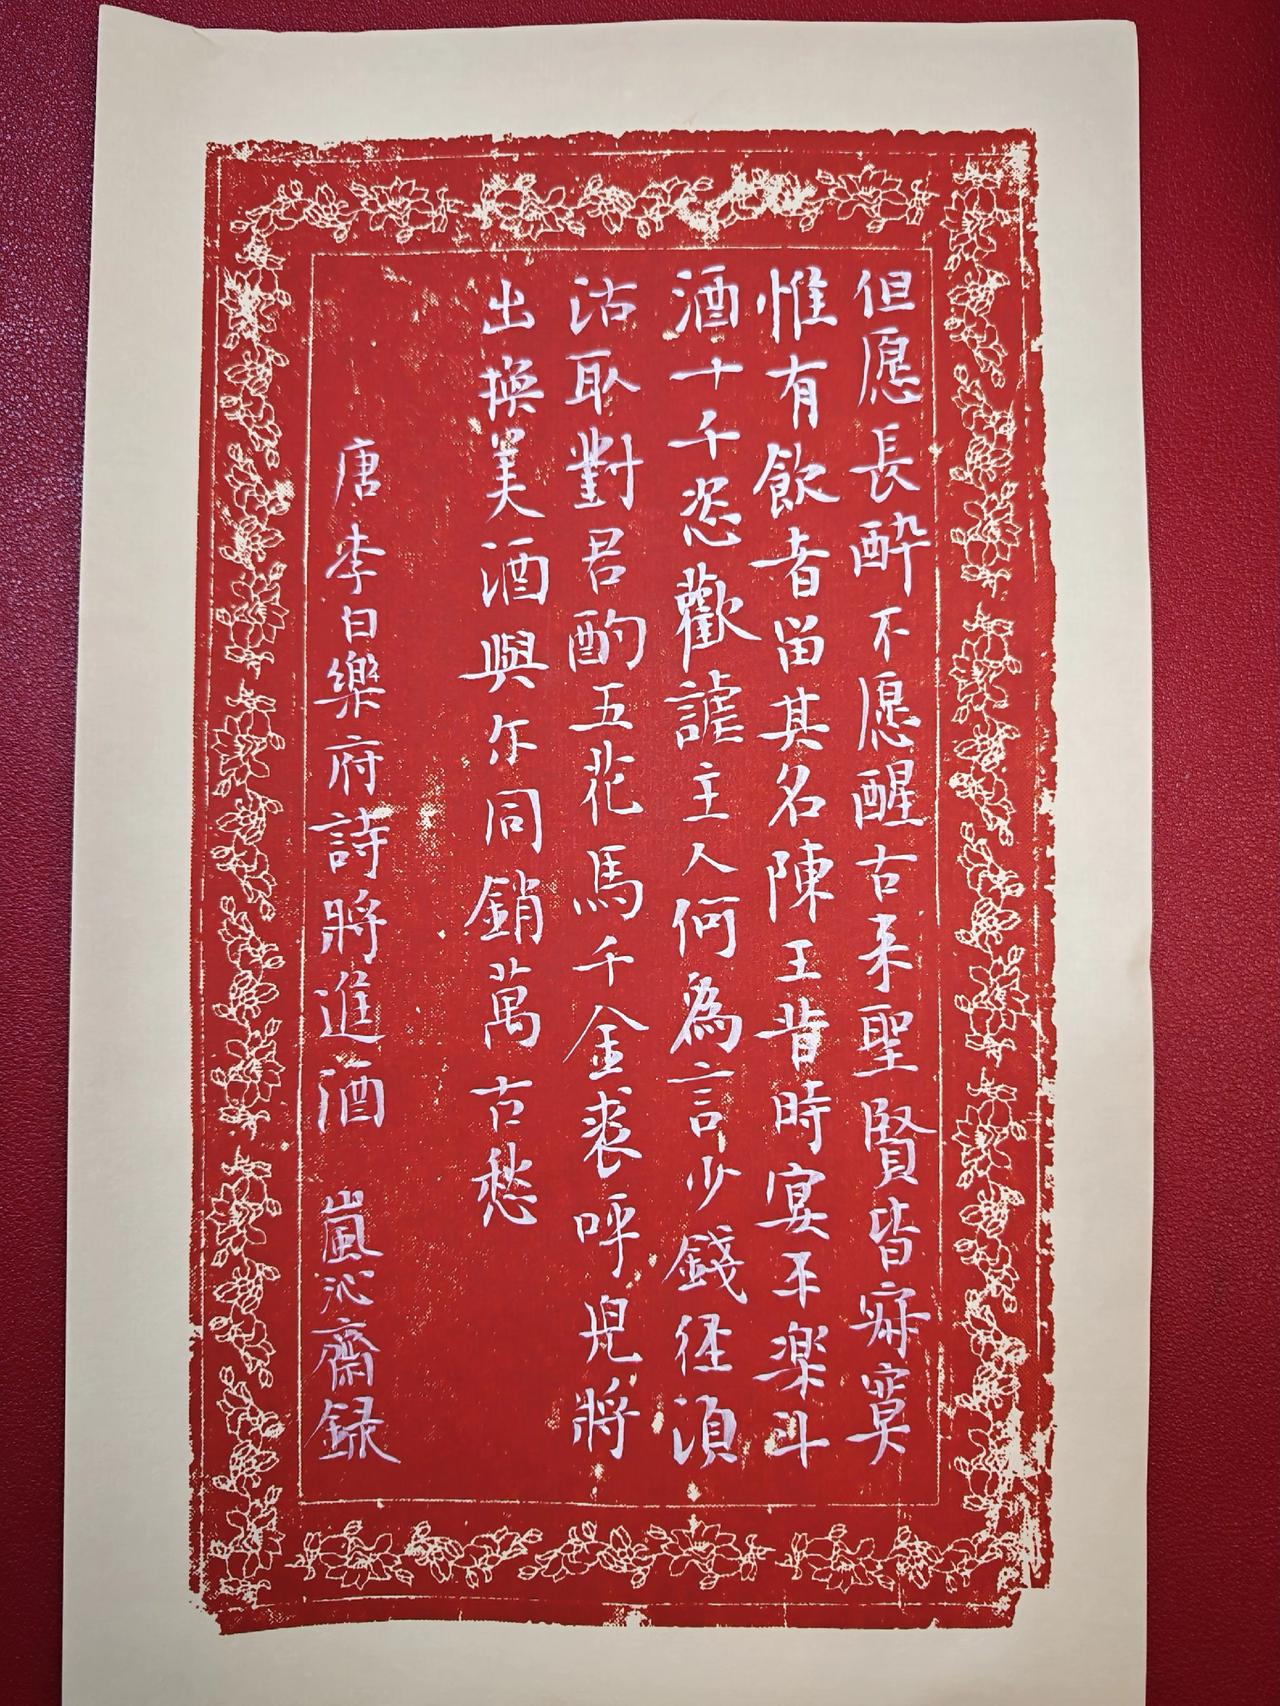 但愿長醉不愿醒古来聖賢皆寂寞
惟有飲者留其名陳王昔時宴平楽斗
酒十千恣歡謔主人何為言少錢径須
沽取對君酌五花馬千金裘呼児將
出換美酒與尓同銷萬古愁
唐李白樂府詩將進酒 嵐沁齋録